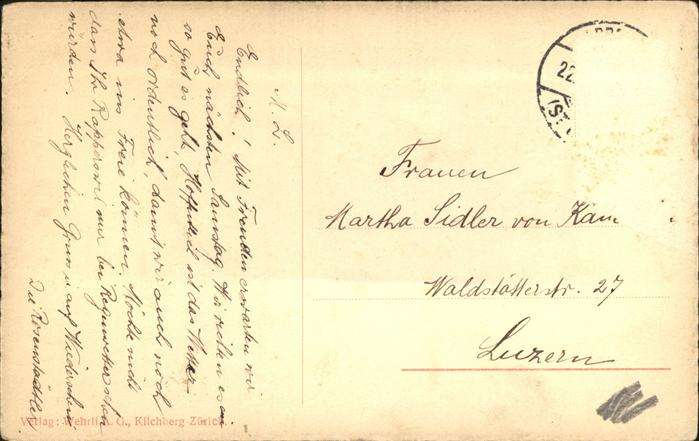 M. L.
Endlich! Mit Freuden erwarten wir
Euch nächsten Samstag. Wir reihen es an
so gut es geht. Hoffentlich ist das Wetter
noch ordentlich, damit wir auch noch
etwas ins Freie können. Möchte nicht
dass Ihr Rapperswil nur bei Regenwetter sehen
würden. Herzlichen Gruss u auf Wiedersehen
Die Rosenstädtler
Frauen
Martha Sidler von
Waldstätterstr. 27
Luzern
22.
(ST.
Verlag: Wehrli A. G., Kilchberg Zürich.